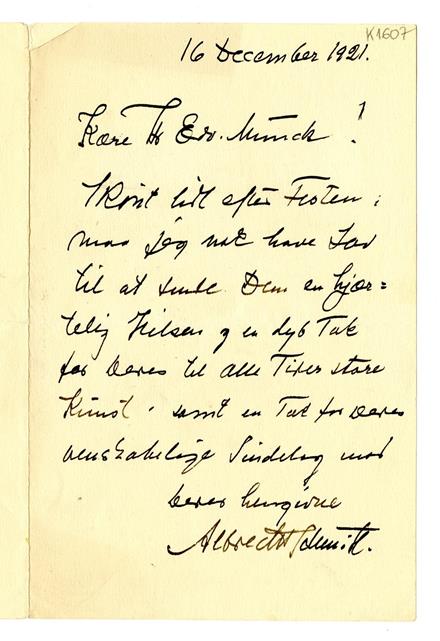 K1607
16 December 1921.
Kære Hr Edv. Munck!
Skønt lidt efter Festen,
maa jeg nok have Lov
til at sende Dem en hjær=
telig Hilsen og en dyb Tak
for Deres til alle Tider store
Kunst, samt en Tak for Deres
venskabelige Sindelag mod
Deres hengivne
Albrecht Schmidt.